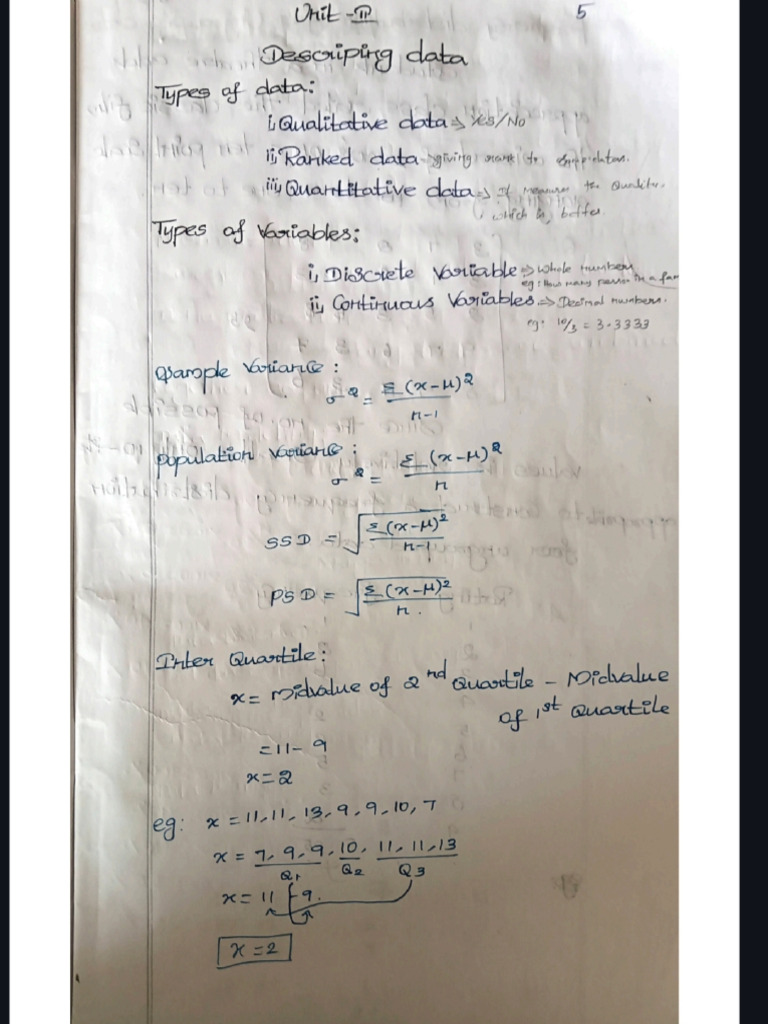 Unit - II
5
Descriping data
Types of data:
i, Qualitative data ⇒ Yes/No
ii, Ranked data ⇒ giving rank to
iii, Quantitative data ⇒ It measures the
which is better.
Types of Variables:
i, Discrete Variable ⇒ Whole numbers
eg: How many person in a fam
ii, Continuous Variables ⇒ Decimal numbers.
eg: 10/3 = 3.3333
Sample Variance:
σ² = Σ(x-μ)² / n-1
Population Variance:
σ² = Σ(x-μ)² / n
SSD = √(Σ(x-μ)² / n-1)
PSD = √(Σ(x-μ)² / n.)
Inter Quartile:
x = Midvalue of 2nd Quartile - Midvalue
of 1st Quartile
= 11 - 9
x = 2
eg: x = 11, 11, 13, 9, 9, 10, 7
x = 7, 9, 9, 10, 11, 11, 13
Q1 Q2 Q3
x = 11 - 9.
x = 2